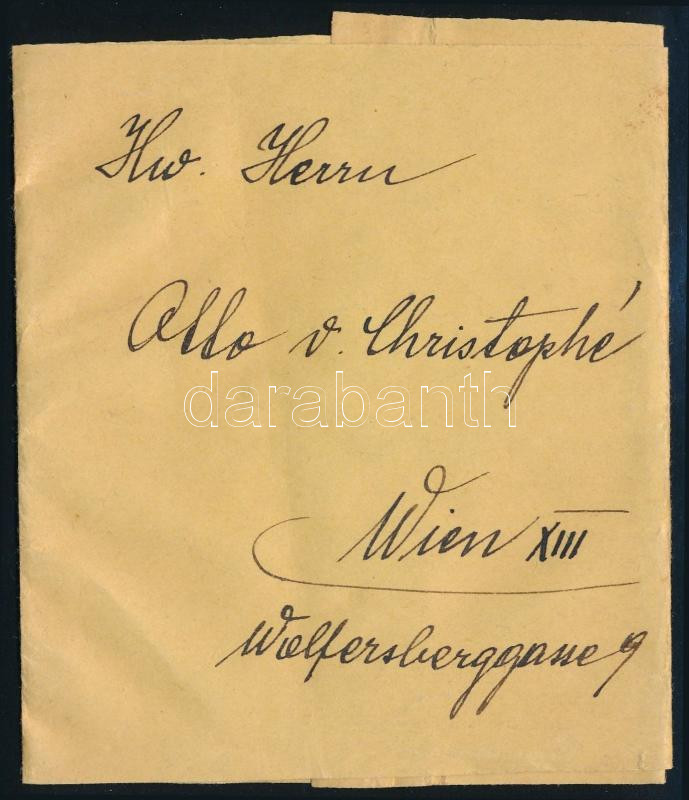 Hw. Herrn
Otto v. Christophé
darabanth
Wien XIII
Wolfersberggasse 9